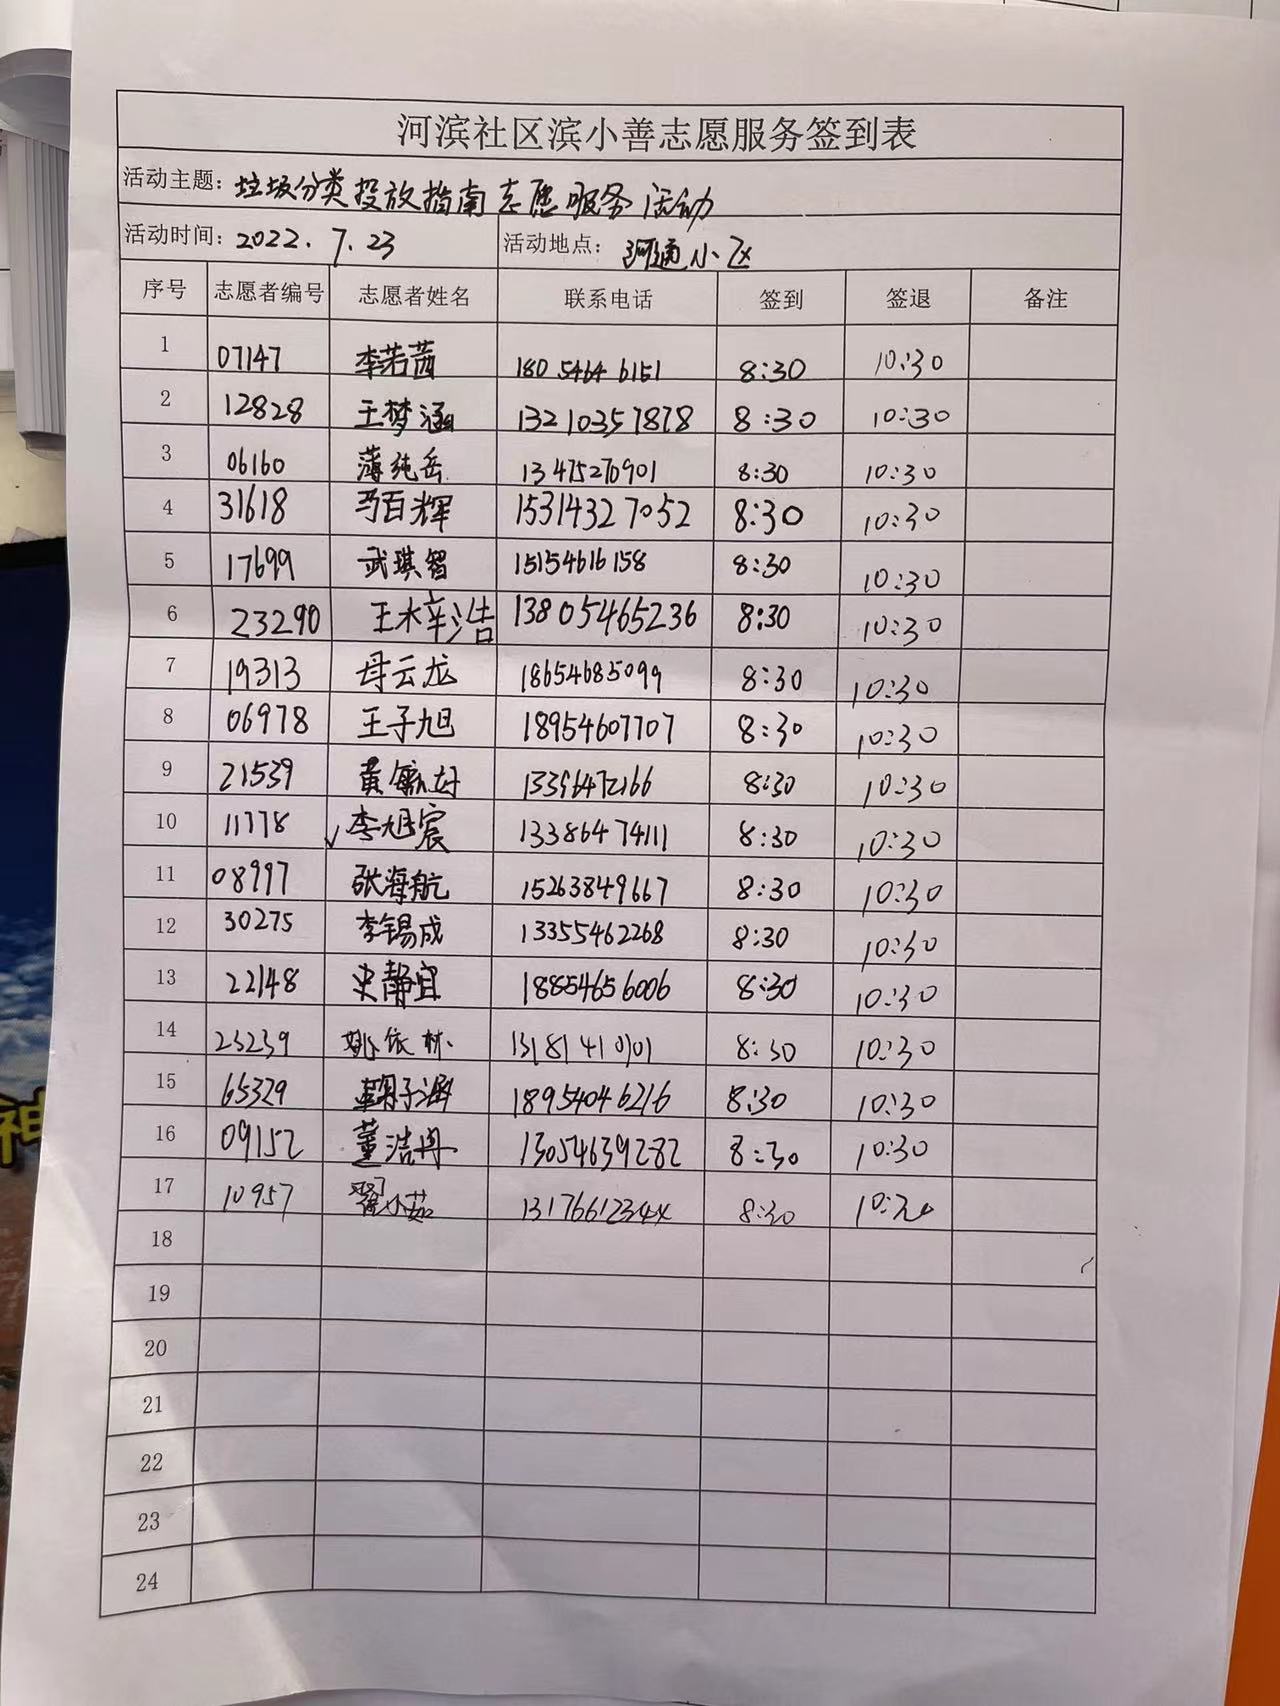 河滨社区滨小善志愿服务签到表
活动主题：垃圾分类投放指南志愿服务活动
活动时间：2022.7.23 活动地点：河通小区
序号 志愿者编号 志愿者姓名 联系电话 签到 签退 备注
1 07147 李若茜 18054646151 8:30 10:30
2 12828 王梦涵 13210357878 8:30 10:30
3 06160 薄纯岳 13475270901 8:30 10:30
4 31618 马百辉 15314327052 8:30 10:30
5 17699 武琪智 15154616158 8:30 10:30
6 23290 王梓浩 13805465236 8:30 10:30
7 19313 母云龙 18654685099 8:30 10:30
8 06978 王子旭 18954607707 8:30 10:30
9 21539 黄 13396472166 8:30 10:30
10 11778 李旭宸 13386474111 8:30 10:30
11 08997 张海航 15263849667 8:30 10:30
12 30275 李锡成 13355462268 8:30 10:30
13 22148 史静宜 18854656006 8:30 10:30
14 23239 姚依林 8:30 10:30
15 65329 18954046216 8:30 10:30
16 09152 董洁冉 13054639282 8:30 10:30
17 10957 翟小茹 8:30 10:30
18
19
20
21
22
23
24
神